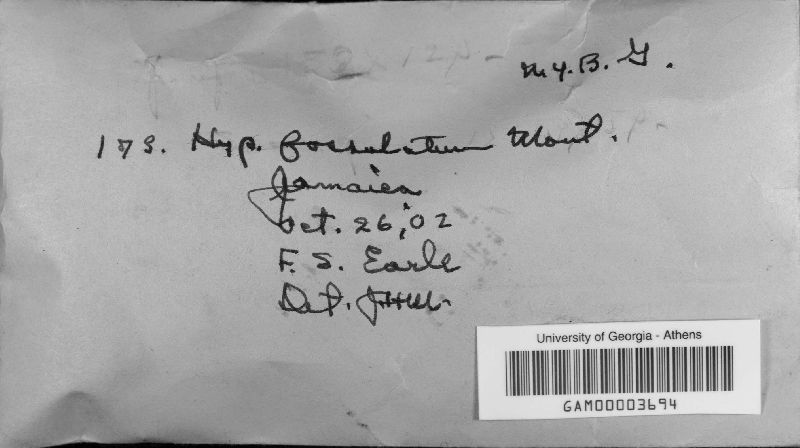 N.Y.B.G.
173. Hyp. fossulatum Mont.
Jamaica
Oct. 26, '02
F. S. Earle
Det. JHM.
University of Georgia - Athens
GAM00003694